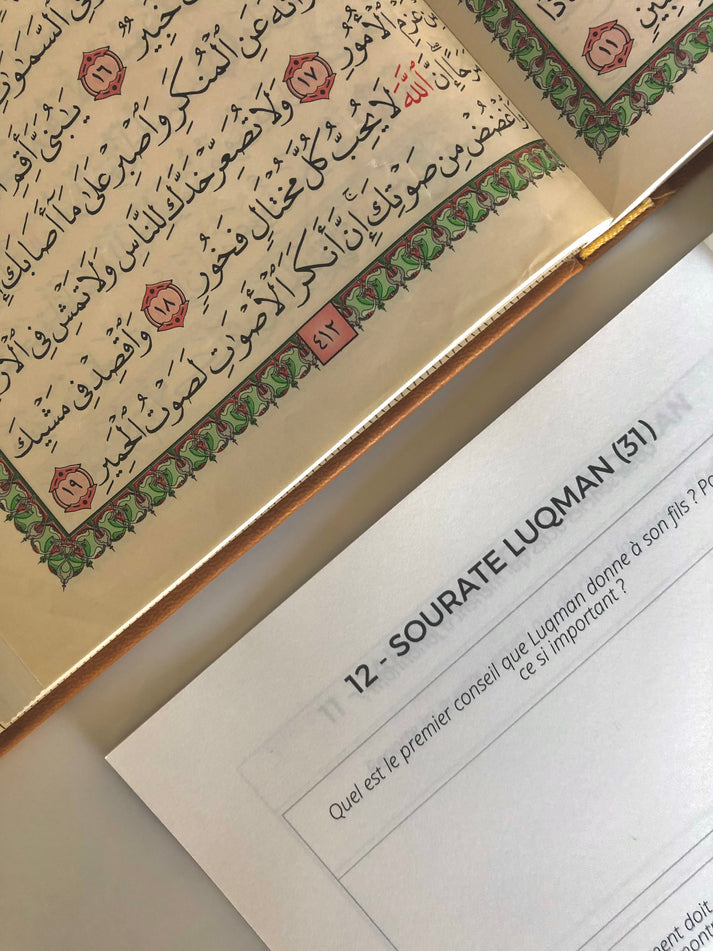 فِى ٱلسَّمَٰوَٰتِ
خَبِيرٌ ١٦ يَٰبُنَىَّ أَقِمِ
عَنِ ٱلْمُنكَرِ وَٱصْبِرْ عَلَىٰ مَآ أَصَابَكَ
مِنْ عَزْمِ ٱلْأُمُورِ ١٧ وَلَا تُصَعِّرْ خَدَّكَ لِلنَّاسِ وَلَا تَمْشِ فِى
إِنَّ ٱللَّهَ لَا يُحِبُّ كُلَّ مُخْتَالٍ فَخُورٍ ١٨ وَٱقْصِدْ فِى مَشْيِكَ
وَٱغْضُضْ مِن صَوْتِكَ ۚ إِنَّ أَنكَرَ ٱلْأَصْوَٰتِ لَصَوْتُ ٱلْحَمِيرِ ١٩
٤١٢
١١
12 - SOURATE LUQMAN (31)
Quel est le premier conseil que Luqman donne à son fils ?
ce si important ?
doit